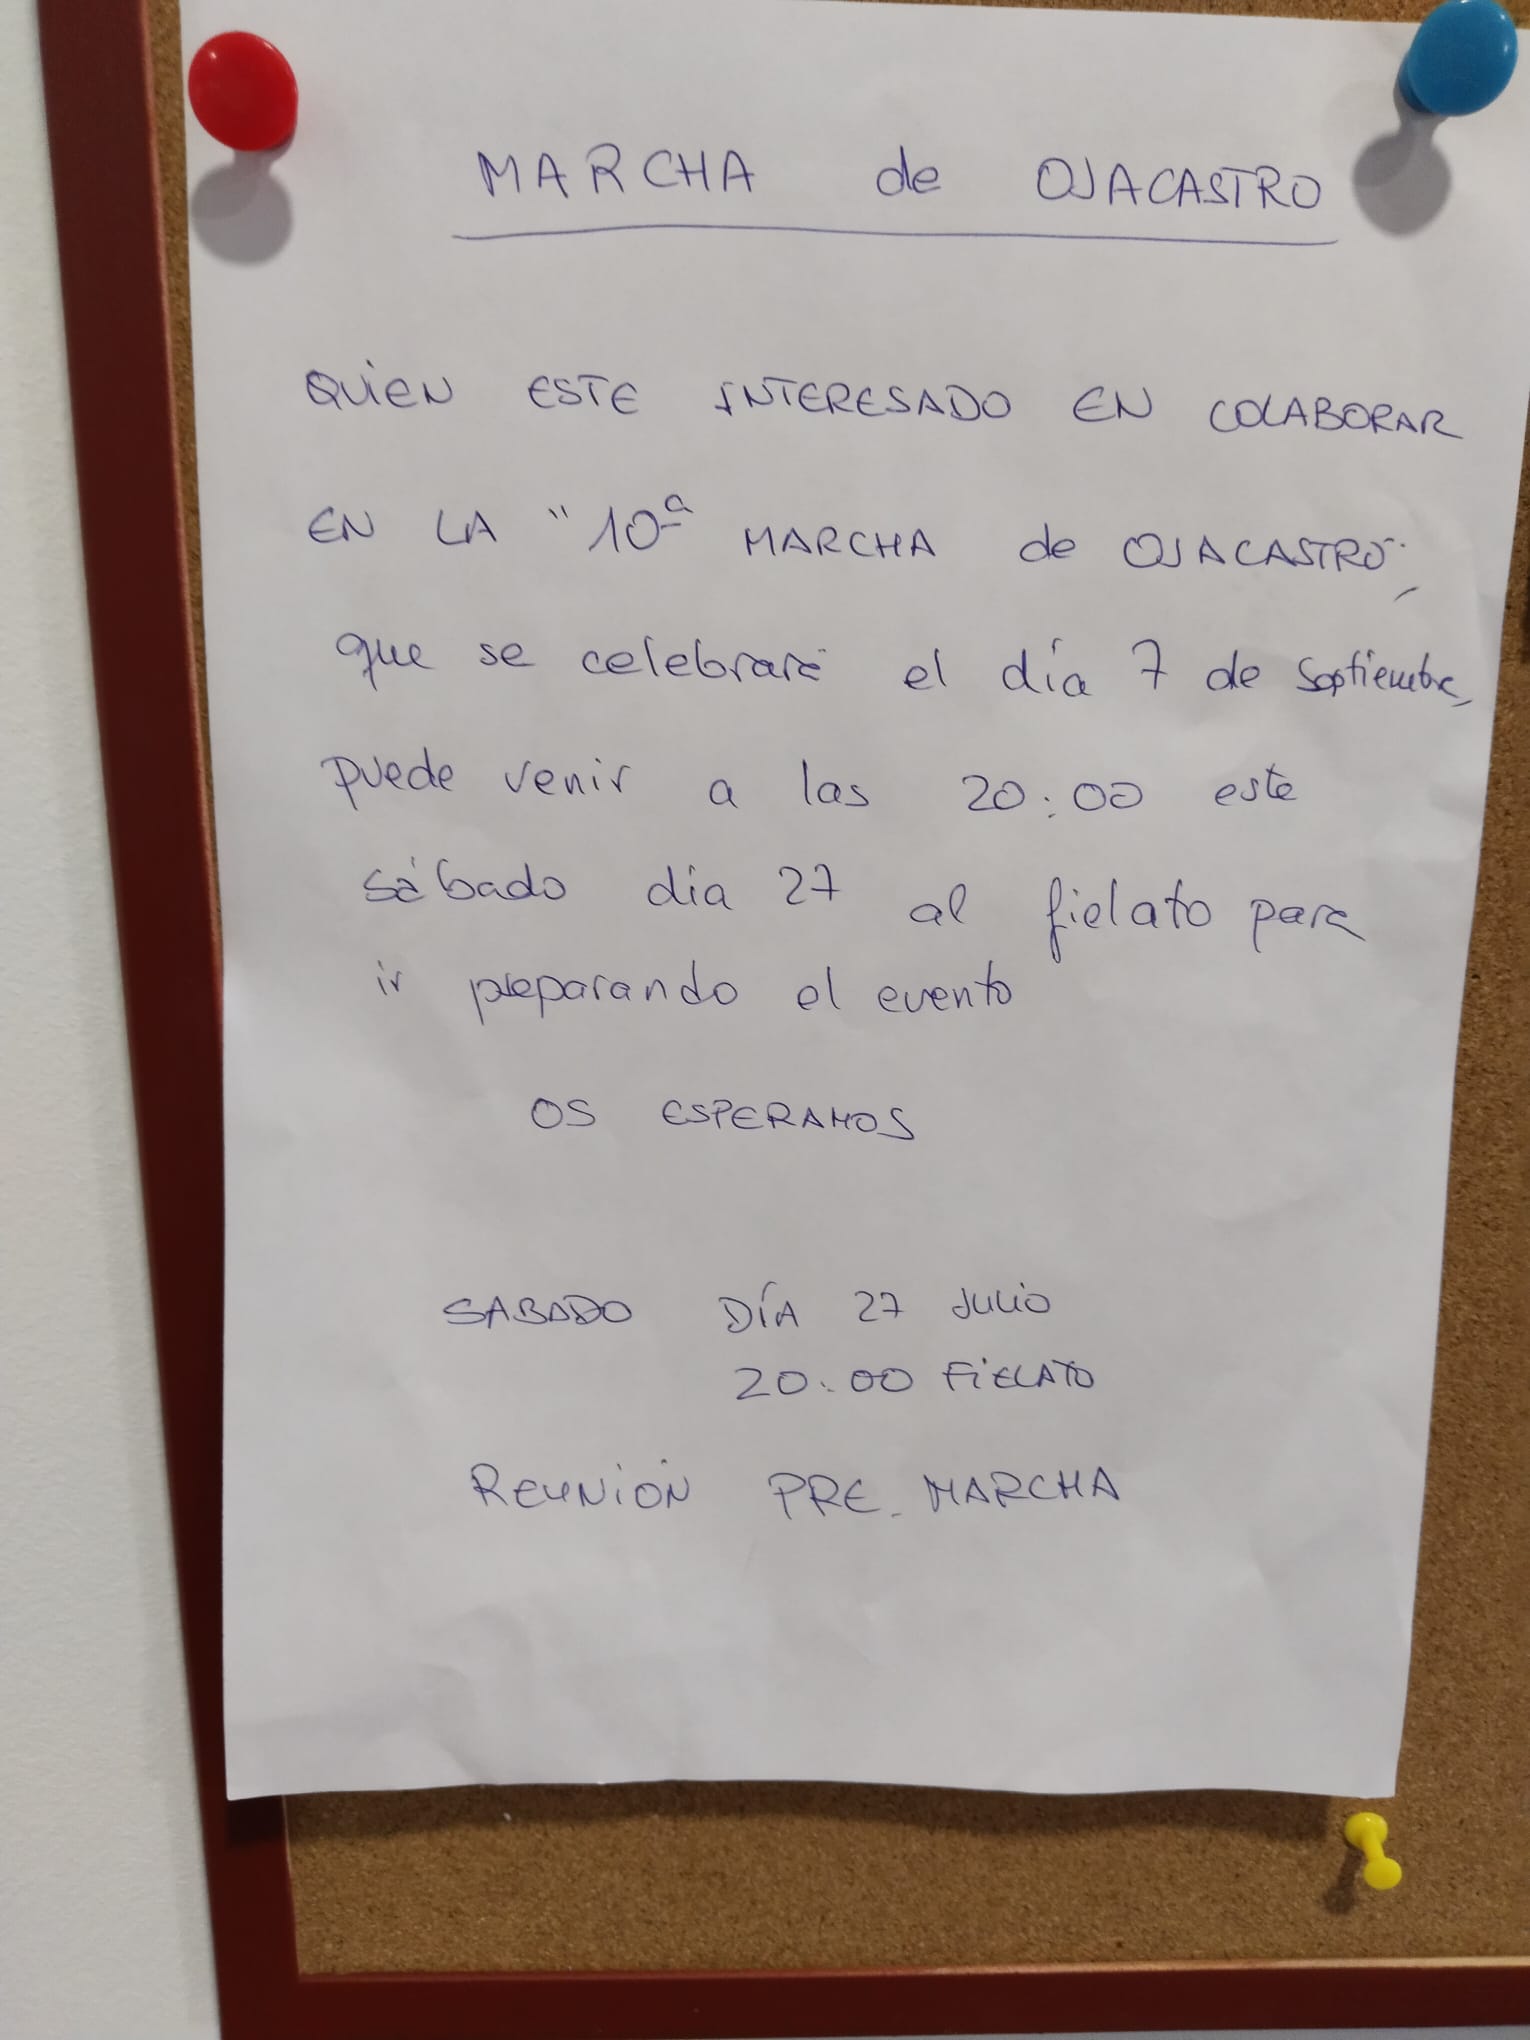 MARCHA de OJACASTRO
QUIEN ESTE INTERESADO EN COLABORAR
EN LA "10ª MARCHA de OJACASTRO",
que se celebrará el día 7 de Septiembre,
puede venir a las 20:00 este
sábado dia 27 al fielato para
ir preparando el evento
OS ESPERAMOS
SABADO DÍA 27 JULIO
20:00 FIELATO
REUNION PRE-MARCHA